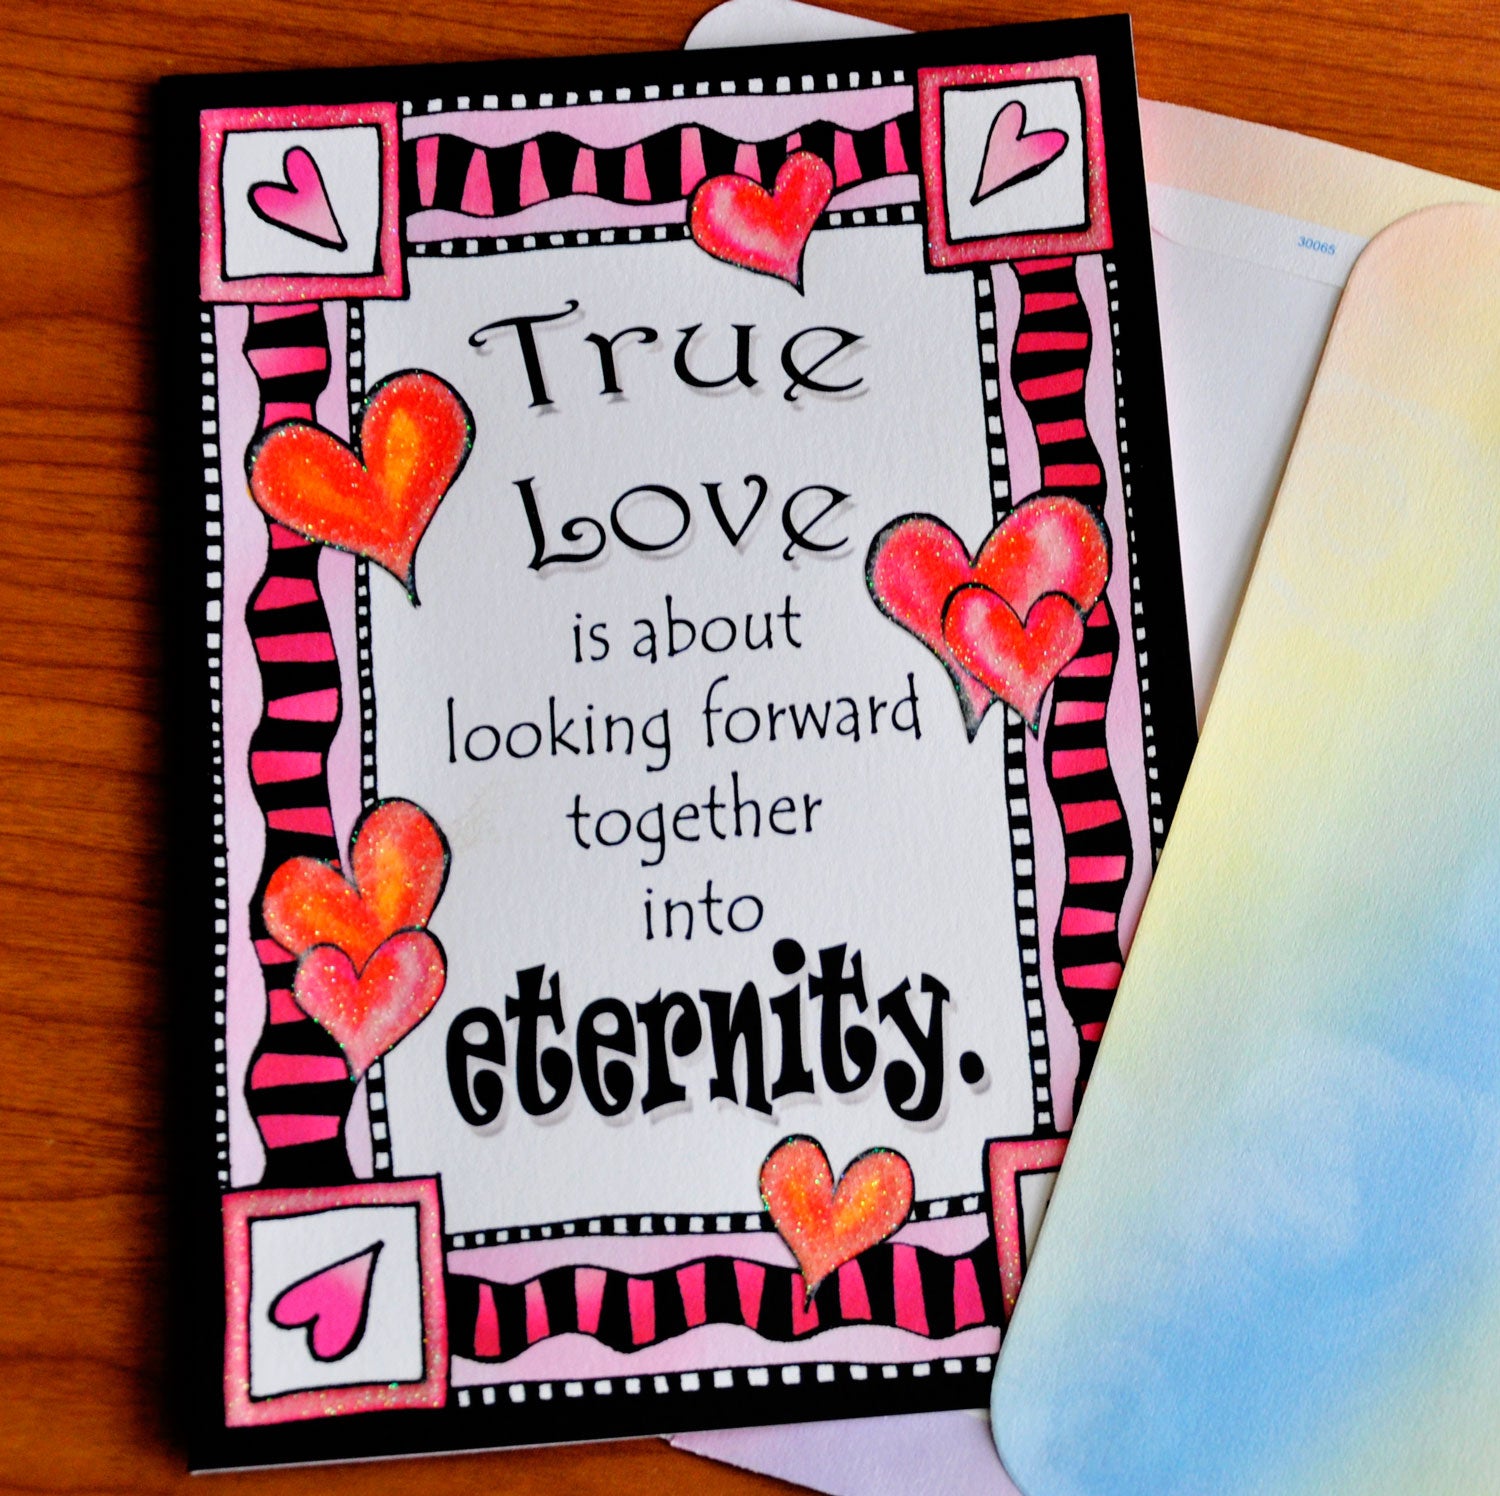 True
Love
is about
looking forward
together
into
eternity.
30065